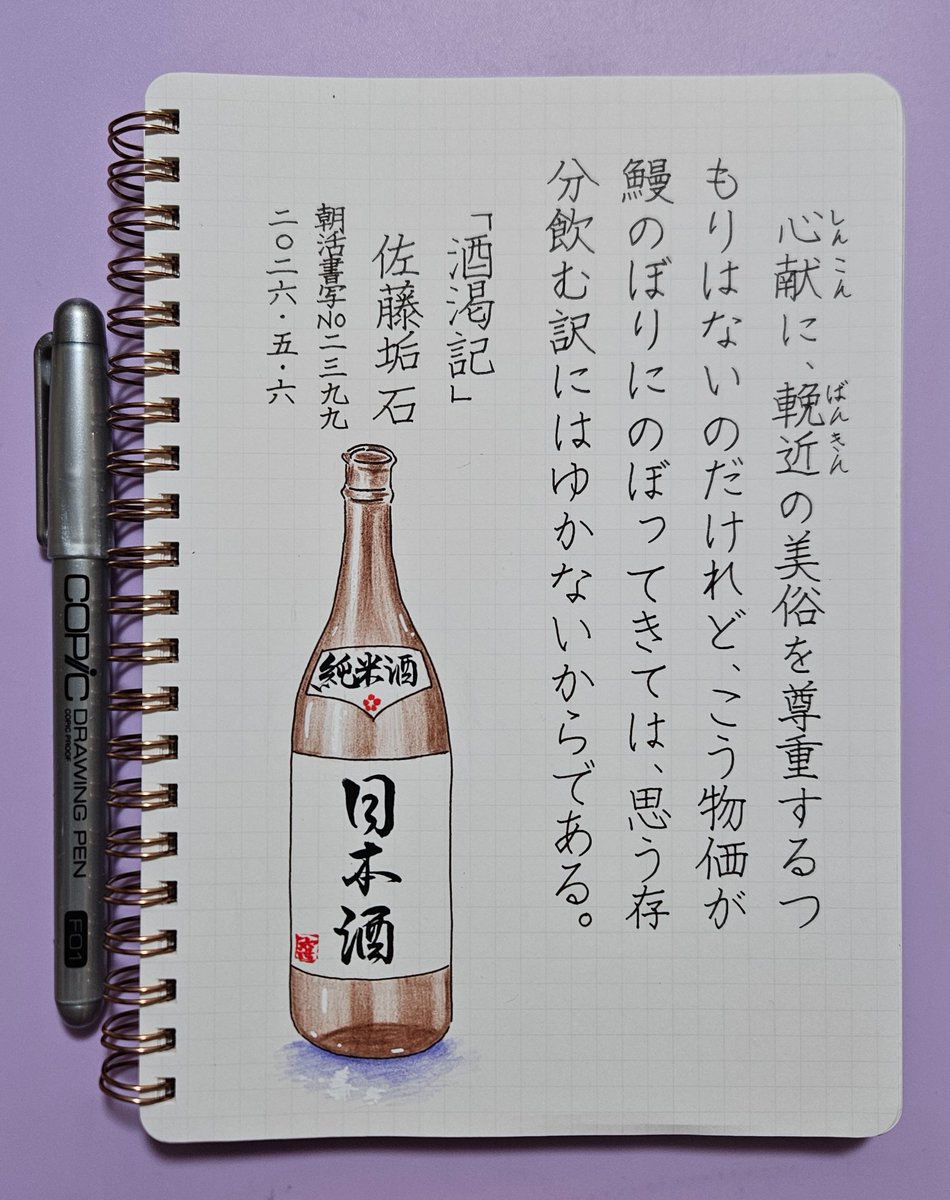 しんこん　ばんきん
心献に、輓近の美俗を尊重するつ
もりはないのだけれど、こう物価が
鰻のぼりにのぼってきては、思う存
分飲む訳にはゆかないからである。
「酒渇記」
佐藤垢石
朝活書写No二三九九
二〇二六・五・六
純米酒
日本酒
COPIC DRAWING PEN
COPIC PROOF
F01